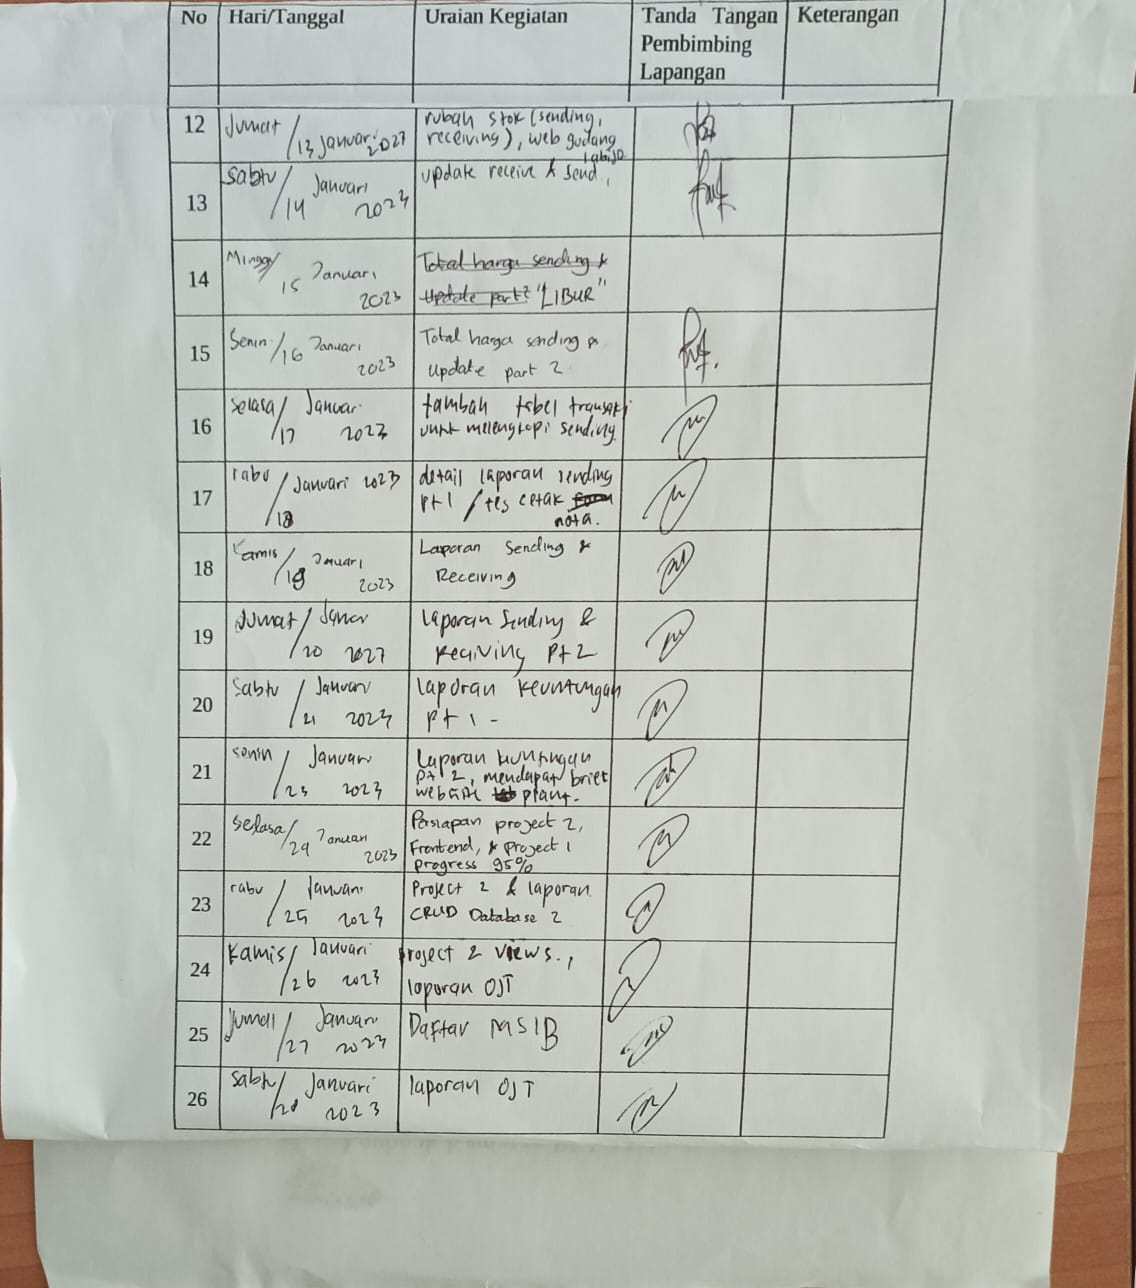 No Hari/Tanggal Uraian Kegiatan Tanda Tangan Keterangan
Pembimbing
Lapangan
12 Jumat / 13 Januari 2023 rubah stok (sending,
receiving), web gudang
13 Sabtu / 14 Januari 2023 update receive & send,
14 Minggu 15 Januari 2023 Total harga sending &
Update part 2 "LIBUR"
15 Senin / 16 Januari 2023 Total harga sending &
Update part 2
16 Selasa / 17 Januari 2023 tambah tabel transaksi
untk melengkapi sending
17 rabu / 18 Januari 2023 detail laporan sending
pt 1 / tes cetak
nota.
18 Kamis / 19 Januari 2023 Laporan Sending &
Receiving
19 Jumat / 20 Januar 2023 laporan Sending &
Receiving Pt 2
20 Sabtu / 21 Januari 2023 laporan keuntungan
pt 1 -
21 Senin / 23 Januari 2023 laporan kuntungan
pt 2, mendapat brief
website plant.
22 Selasa / 24 Januari 2023 Persiapan project 2,
Frontend, & Project 1
progress 95%
23 rabu / 25 Januari 2023 Project 2 & laporan
CRUD Database 2
24 Kamis / 26 Januari 2023 project 2 views.,
laporan OJT
25 Jumat / 27 Januari 2023 Daftar MSIB
26 Sabtu / 28 Januari 2023 laporan OJT